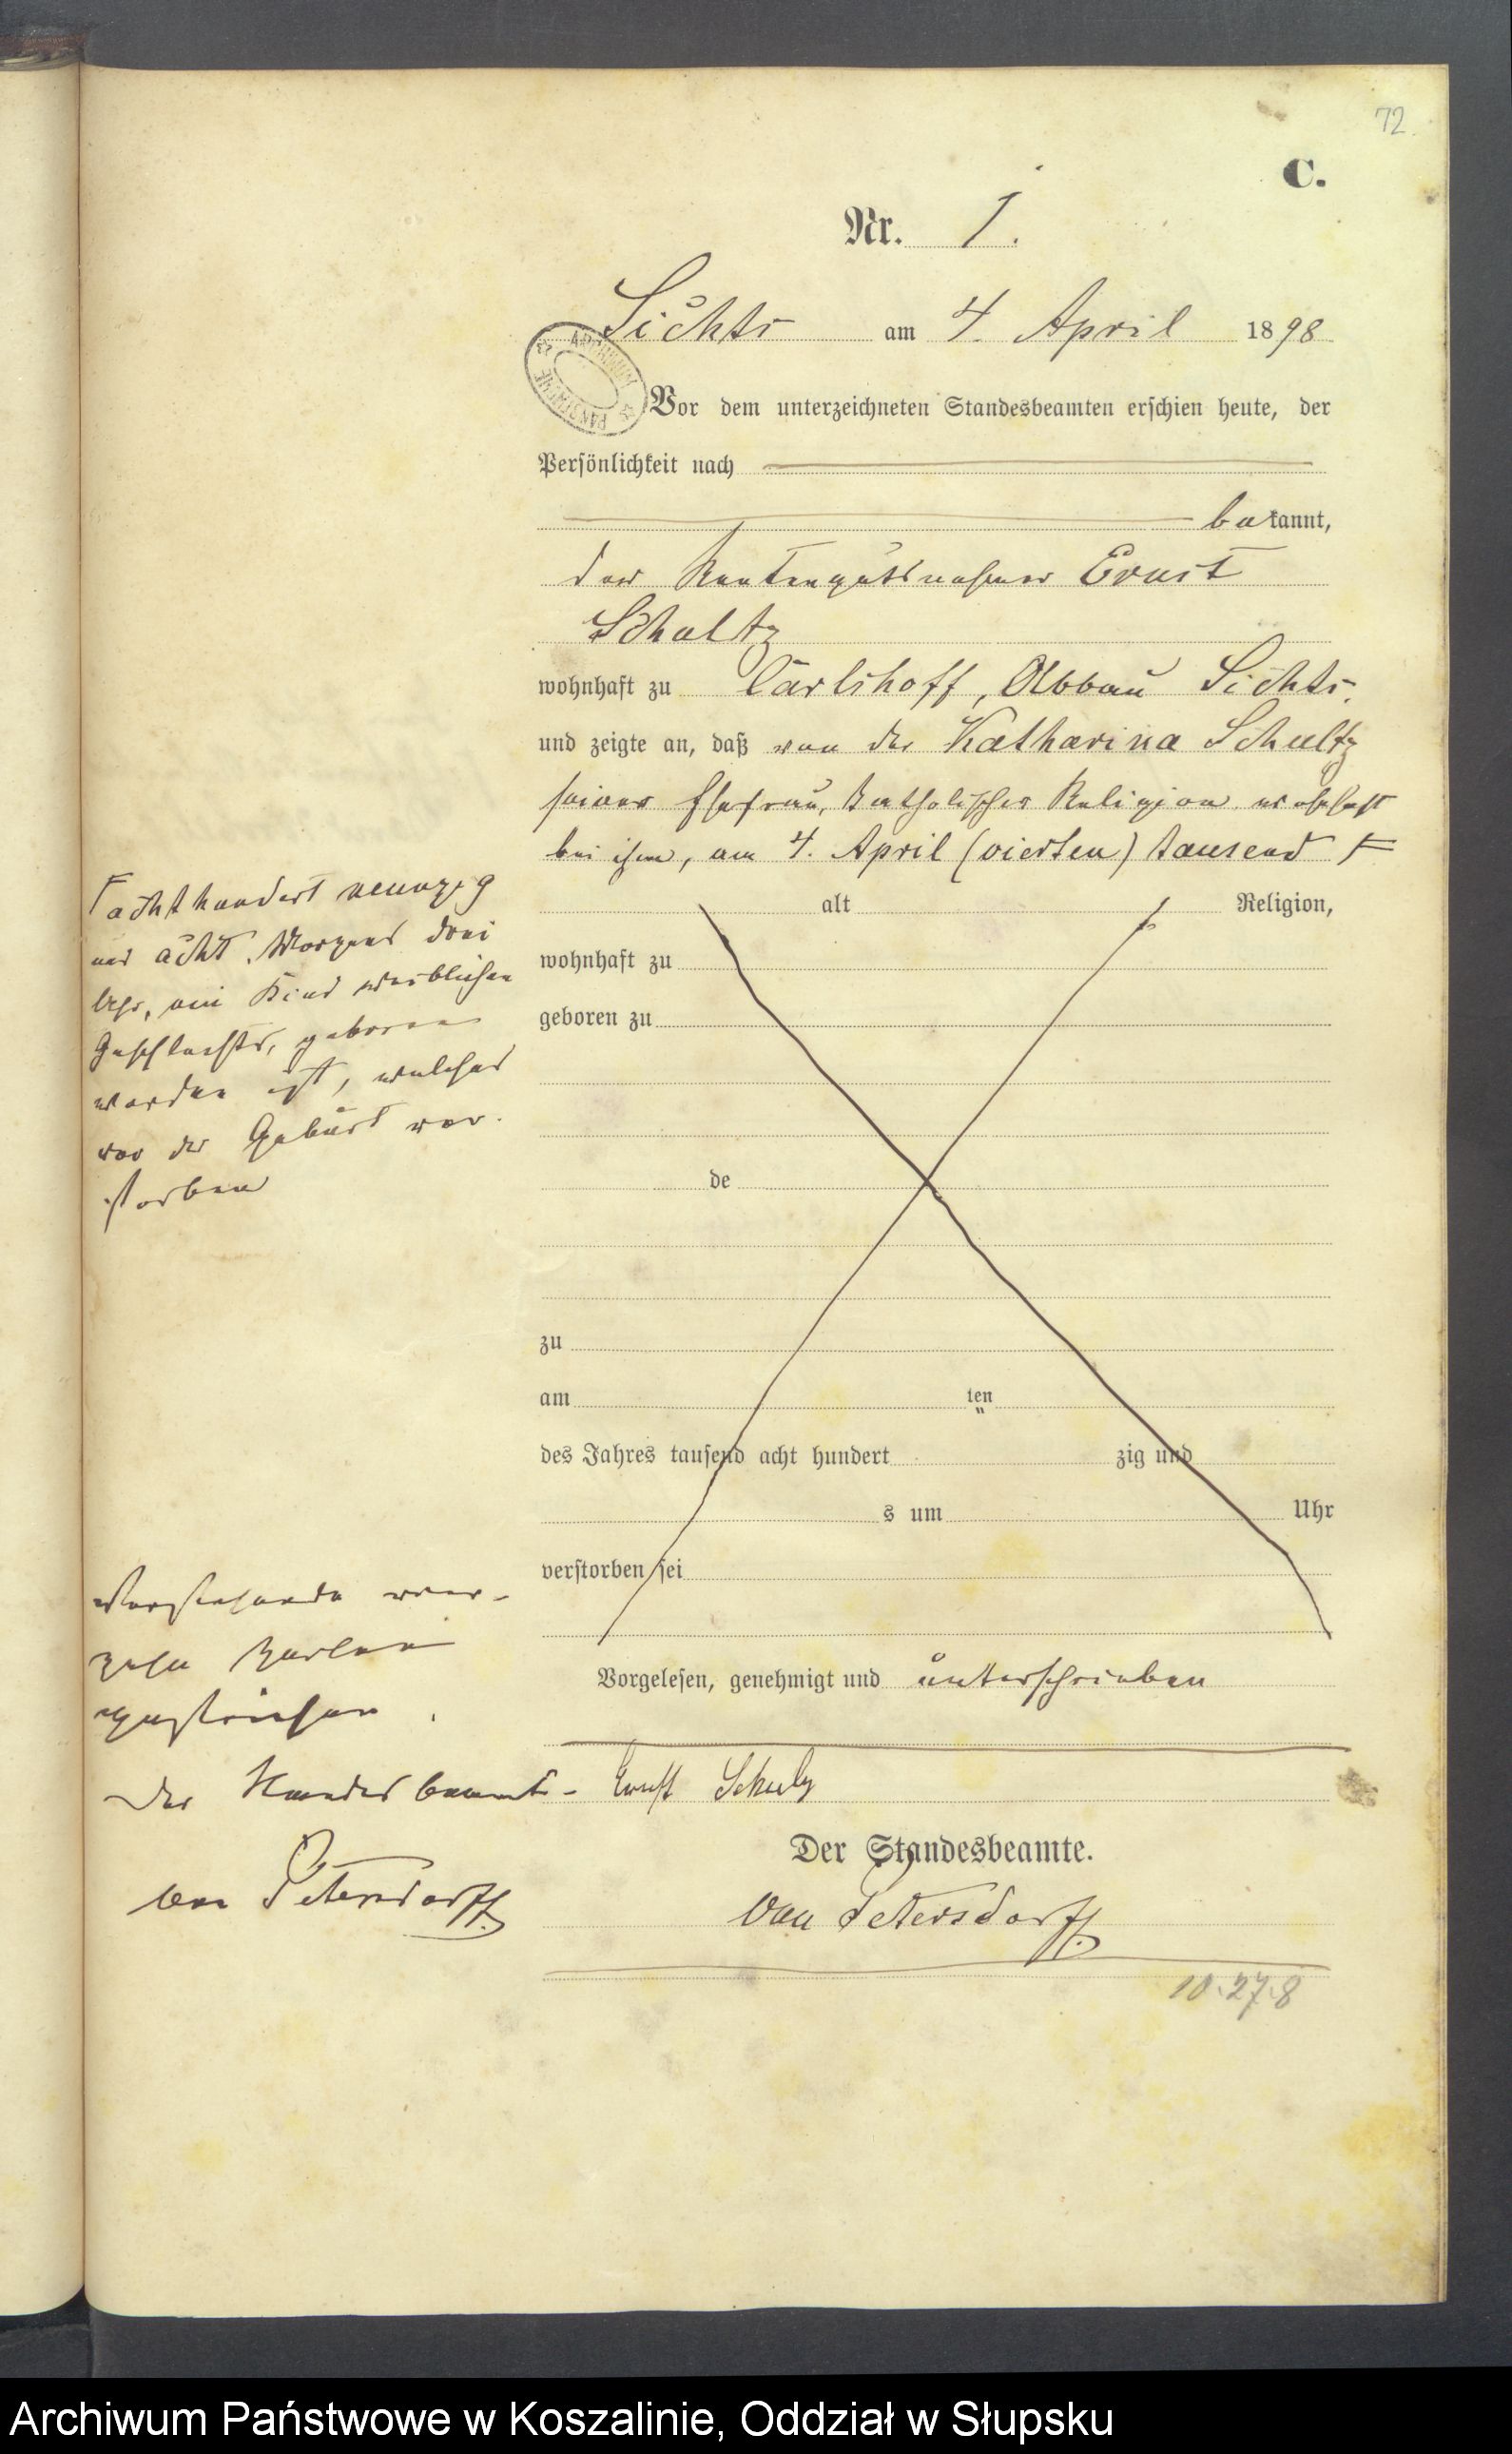 72
C.
Nr. 1.
Sichts am 4. April 1898
Vor dem unterzeichneten Standesbeamten erschien heute, der
Persönlichkeit nach
bekannt,
der Rentengutsnehmer Ernst
Schultz
wohnhaft zu Carlshoff, Abbau Sichts,
und zeigte an, daß von der Katharina Schultz
seiner Ehefrau, katholischer Religion wohnhaft
bei ihm, am 4. April (vierten) tausend
achthundert neunzig
und acht, Morgens drei
Uhr, ein Kind weiblichen
Geschlechts, geboren
worden ist, welches
vor der Geburt ver-
storben
alt Religion,
wohnhaft zu
geboren zu
de
zu
am ten
des Jahres tausend acht hundert zig und
s um Uhr
verstorben sei
Vorstehende vier-
zehn Zeilen
gestrichen.
Der Standesbeamte
von Petersdorff.
Vorgelesen, genehmigt und unterschrieben
Ernst Schulz
Der Standesbeamte.
von Petersdorff.
10.27.8
Archiwum Państwowe w Koszalinie, Oddział w Słupsku